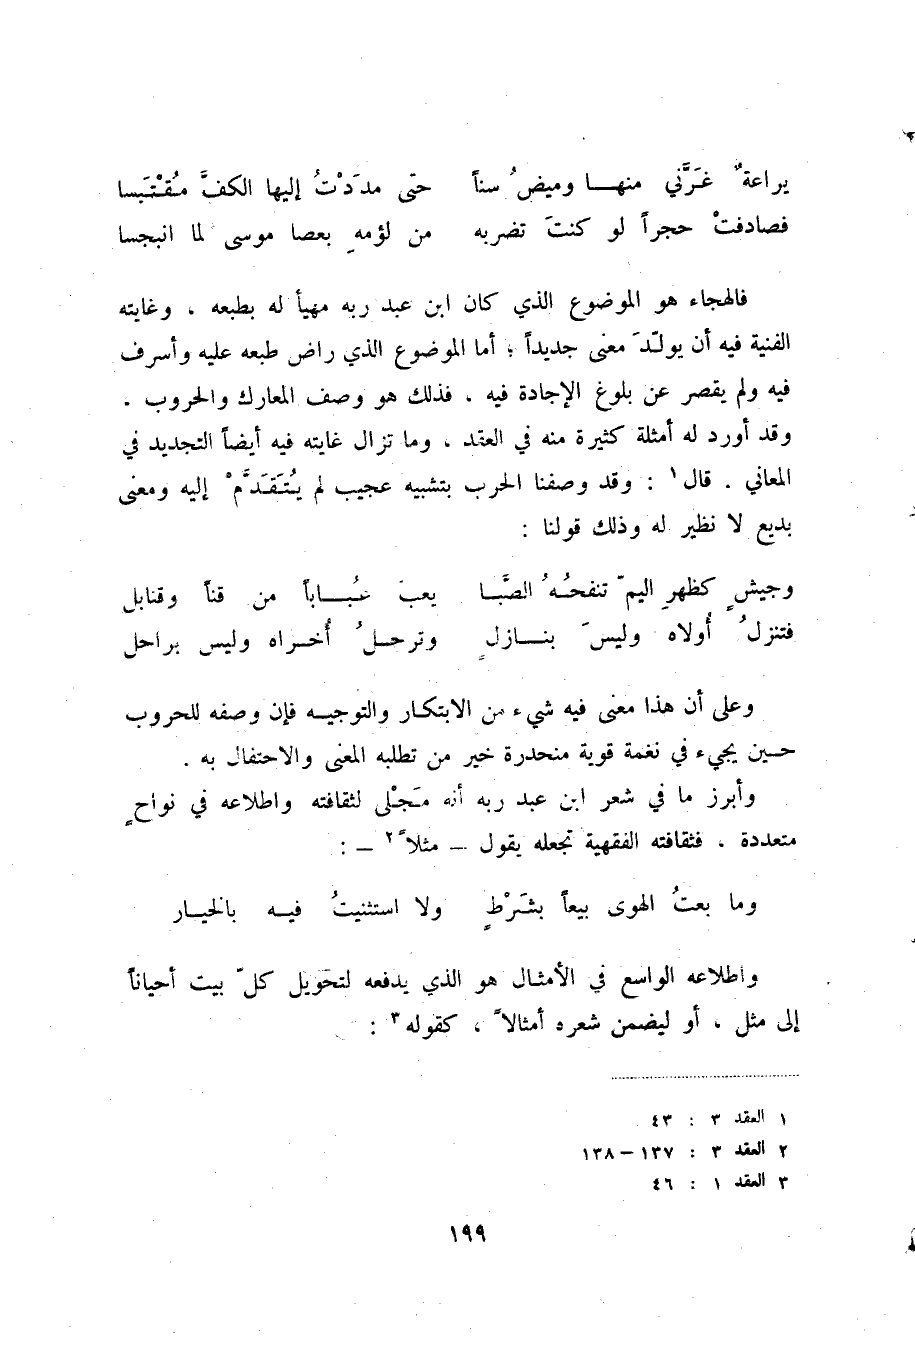 يراعةٌ غَرَّني منهــا وميضُ سناً حتّى مددَدْتُ إليها الكفَّ مُقْتَبَسا
فصادفتْ حجراً لو كنتَ تضربه من لؤمهِ بعصا موسى لما انبجسا
فالهجاء هو الموضوع الذي كان ابن عبد ربه مهيأ له بطبعه ، وغايته
الفنية فيه أن يولّدَ معنى جديداً ؛ أما الموضوع الذي راض طبعه عليه وأسرف
فيه ولم يقصر عن بلوغ الإجادة فيه ، فذلك هو وصف المعارك والحروب .
وقد أورد له أمثلة كثيرة منه في العقد ، وما تزال غايته فيه أيضاً التجديد في
المعاني . قال١ : وقد وصفنا الحرب بتشبيه عجيب لم يُتَقَدَّمْ إليه ومعنى
بديع لا نظير له وذلك قولنا :
وجيشٍ كظهرِ اليمّ تنفحُهُ الصَّبا يعبّ عُبــاباً من قناً وقنابل
فتنزلُ أُولاه وليسَ بنــازلٍ وترحلُ أُخراه وليس براحل
وعلى أن هذا معنى فيه شيء من الابتكار والتوجيه فإن وصفه للحروب
حين يجيء في نغمة قوية منحدرة خير من تطلبه المعنى والاحتفال به .
وأبرز ما في شعر ابن عبد ربه أنه مَجْلى لثقافته واطلاعه في نواحٍ
متعددة . فثقافته الفقهية تجعله يقول – مثلاً٢ – :
وما بعتُ الهوى بيعاً بشَرْطٍ ولا استثنيتُ فيه بالخيار
واطلاعه الواسع في الأمثال هو الذي يدفعه لتحويل كلّ بيت أحياناً
إلى مثل ، أو ليضمن شعره أمثالاً ، كقوله٣ :
١ العقد ٣ : ٤٣
٢ العقد ٣ : ١٣٧ – ١٣٨
٣ العقد ١ : ٤٦
١٩٩